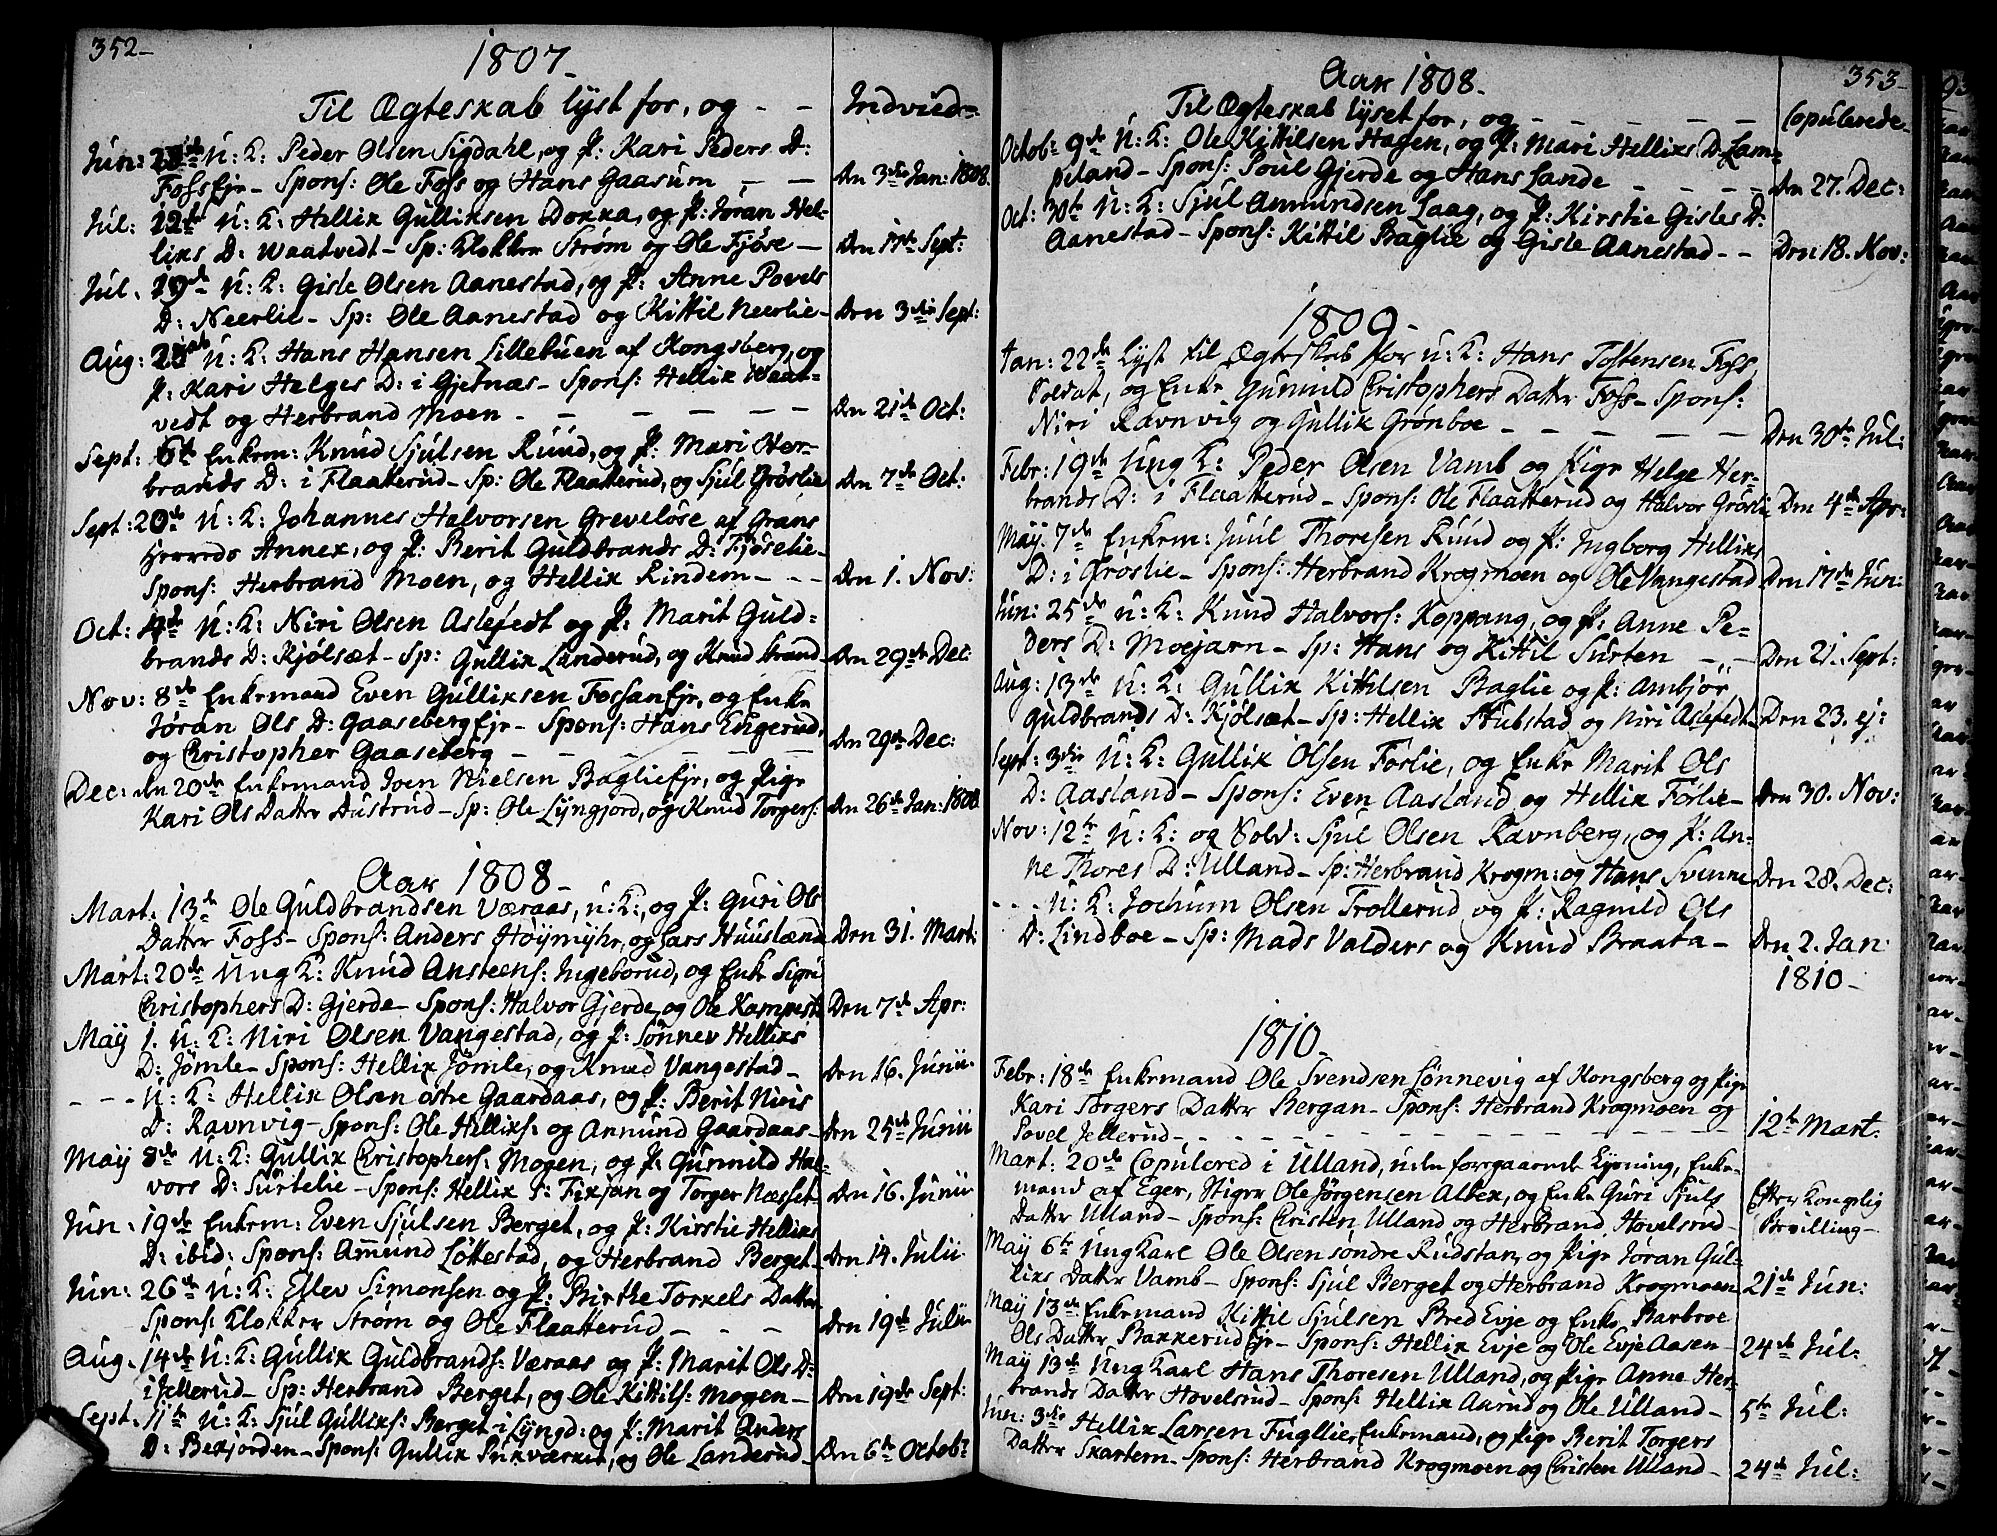 352-
1807.
Til Ægteskab lyst for, og - - Indviede-
Jun: U: K: Peder Olsen Sigdahl, og P: Kari Peders D:
FossEjr- Spons: Ole Foss og Hans Gaasum - - den 3die Jan: 1808.
Jul: 12te U: K: Hellik Gulliksen Dokka, og P: Jøran Hel-
liks D: Waatvedt- Sp: Klokker Strøm og Ole Fjøse- den 17de Sept:
Jul. 19de U: K: Gisle Olsen Aanestad, og P: Anne Povels
D: Neerlie- Sp: Ole Aanestad og Kittil Neerlie- Den 3die Sept:
Aug: U: K: Hans Hansen Lillebuen af Kongsberg, og
P: Kari Helges D: i Gjetnæs- Spons: Hellik Waat-
vedt og Herbrand Moen - - - - - - den 21de Oct:
Sept: 6te Enkem: Knud Sjulsen Ruud, og P: Mari Her-
brands D: i Flaatterud- Sp: Ole Flaatterud, og Sjul Grøslie den 7de Oct:
Sept: 20de U: K: Johannes Halvorsen Greveløse af Grans
Herreds Annex, og P: Berit Guldbrands D: Fjøselie-
Spons: Herbrand Moen, og Hellik Rindem- - - Den 1. Nov:
Oct: 4de U: K: Niri Olsen Aslefedt og P: Marit Guld-
brands D: Kjølsæt- Sp: Gullik Landerud, og Knud brand- den 29de Dec:
Nov: 8de Enkemand Even Gulliksen FossanEjr, og Enke
Jøran Ols D: GaasebergEjr- Spons: Hans Engerud,
og Christopher Gaaseberg - - - - - den 29de Dec:
Dec: den 20de Enkemand Joen Nielsen BaglieEjr, og Pige
Kari Ols Datter Dustrud- Sp: Ole Lyngjord, og Knud Torgers: den 26de Jan: 1808
Aar 1808-
Mart. 13de Ole Guldbrandsen Væraas, u: K:, og P: Guri Ols
Datter Foss- Spons: Anders Høymyhr, og Lars Huusland Den 31. Mart:
Mart: 20de Ung K: Knud Ansteens: Ingeborud, og Enke Sigri
Christophers D: Gjerde- Spons: Halvor Gjerde og Ole Kampest Den 7de Apr:
May 1. U: K: Niri Olsen Vangestad, og P: Sønnev Helliks
D: Jømle- Spons: Hellik Jømle, og Knud Vangestad- Den 16. Junii-
- - - U: K: Hellik Olsen østre Gaardaas, og P: Berit Niris
D: Ravnvig- Spons: Ole Helliks: og Annund Gaardaas- Den 25de Junii
May 8de U: K: Gullik Christophers: Mogen, og P: Gunnild Hal-
vors D: Surtelie- Spons: Hellik S: Fixjan og Torger Næsset- Den 16. Junii
Jun: 19de Enkem: Even Sjulsen Berget, og P: Kirstie Helliks
D: ibid: Spons: Amund Løkestad, og Herbrand Berget- Den 14. Julii
Jun: 26de U: K: Ellev Simonsen og P: Birthe Torkels Datter
Spons: Klokker Strøm og Ole Flaatterud - - - Den 19de Julii
Aug. 14de U: K: Gullik Guldbrands: Væraas og P: Marit Ols D:
i Jellerud- Sp: Herbrand Berget, og Ole Kittils: Mogen- Den 19de Sept:
Sept. 11te U: K: Sjul Gulliks: Berget i Lyngd: og P: Marit Anders
D: Bekjorden- Spons: Gullik Pukværket, og Ole Landerud- Den 6te Octob:
353-
Aar 1808-
Til Ægteskab lyset for, og - - - - - Copulerede-
Octob: 9de U: K: Ole Kittilsen Hagen, og P: Mari Helliks D: Lam-
piland- Spons: Poul Gjerde og Hans Lande - - - - Den 27. Dec:
Oct: 30te U: K: Sjul Amundsen Laag, og P: Kirstie Gisles D:
Aanestad- Spons: Kittil Baglie og Gisle Aanestad- - Den 18. Nov:
1809-
Jan: 22de Lyst til Ægteskab for U: K: Hans Tostensen Foss,
Soldat, og Enke Gunnild Christophers Datter Foss- Spons:
Niri Ravnvig og Gullik Grønboe - - - - - Den 30te Jul:
Febr: 19de Ung K: Peder Olsen Vamb og Pige Helge Her-
brands D: i Flaatterud- Spons: Ole Flaatterud og Halvor Grøsli- Den 4de Apr:
May. 7de Enkem: Juul Thoresen Ruud og P: Ingborg Helliks
D: i Grøslie- Spons: Herbrand Krogmoen og Ole Vangestad Den 17de Jun:
Jun: 25de U: K: Knud Halvors: Koppang, og P: Anne Pe-
ders D: Moejarn- Sp: Hans og Kittil Surten - - Den 21. Sept:
Aug: 13de U: K: Gullik Kittilsen Baglie og P: Ambjør
Guldbrands D: Kjølsæt- Sp: Hellik Stubstad og Niri Aslefedt- Den 23. ej:
Sept: 3die U: K: Gullik Olsen Førlie, og Enke Marit Ols
D: Aasland- Spons: Even Aasland og Hellik Førlie- Den 30. Nov:
Nov: 12te U: K: og Sold: Sjul Olsen Ravnberg, og P: An-
ne Thores D: Ulland- Sp: Herbrand Krogm: og Hans Svenne Den 28. Dec:
- - - U: K: Jochum Olsen Trollerud og P: Ragnild Ols
D: Lindboe- Sp: Mads Valders og Knud Braata- Den 2. Jan:
1810-
1810-
Febr: 18de Enkemand Ole Svendsen Lønnevig af Kongsberg og Pige
Kari Torgers Datter Bergan- Spons: Herbrand Krogmoen og
Povel Jellerud- - - - - - - - - - 12te Mart:
Mart: 20de Copulered i Ulland, uden foregaaende Lysning, Enke-
mand af Eger, Stiger Ole Jørgensen Albek, og Enke Guri Sjuls Efter Kongelig
Datter Ulland- Spons: Christen Ulland og Herbrand Hovelsrud- Bevilling-
May 6te UngKarl Ole Olsen søndre Rudstan, og Pige Jøran Gul-
liks Datter Vamb- Spons: Sjul Berget og Herbrand Krogmoen 21de Jun:
May 13de Enkemand Kittil Sjulsen BredEvje og Enke Barbroe
Ols Datter BakkerudEjr- Spons: Hellik Evje og Ole EvjeAasen- 24de Jul:
May 13de UngKarl Hans Thoresen Ulland, og Pige Anne Her-
brands Datter Hovelsrud- Spons: Hellik Aarud og Ole Ulland- 5te Jul:
Jun: 3die Hellik Larsen Fugllie, Enkemand, og Pige Berit Torgers
Datter Skartern- Spons: Herbrand Krogmoen og Christen Ulland- 24de Jul: